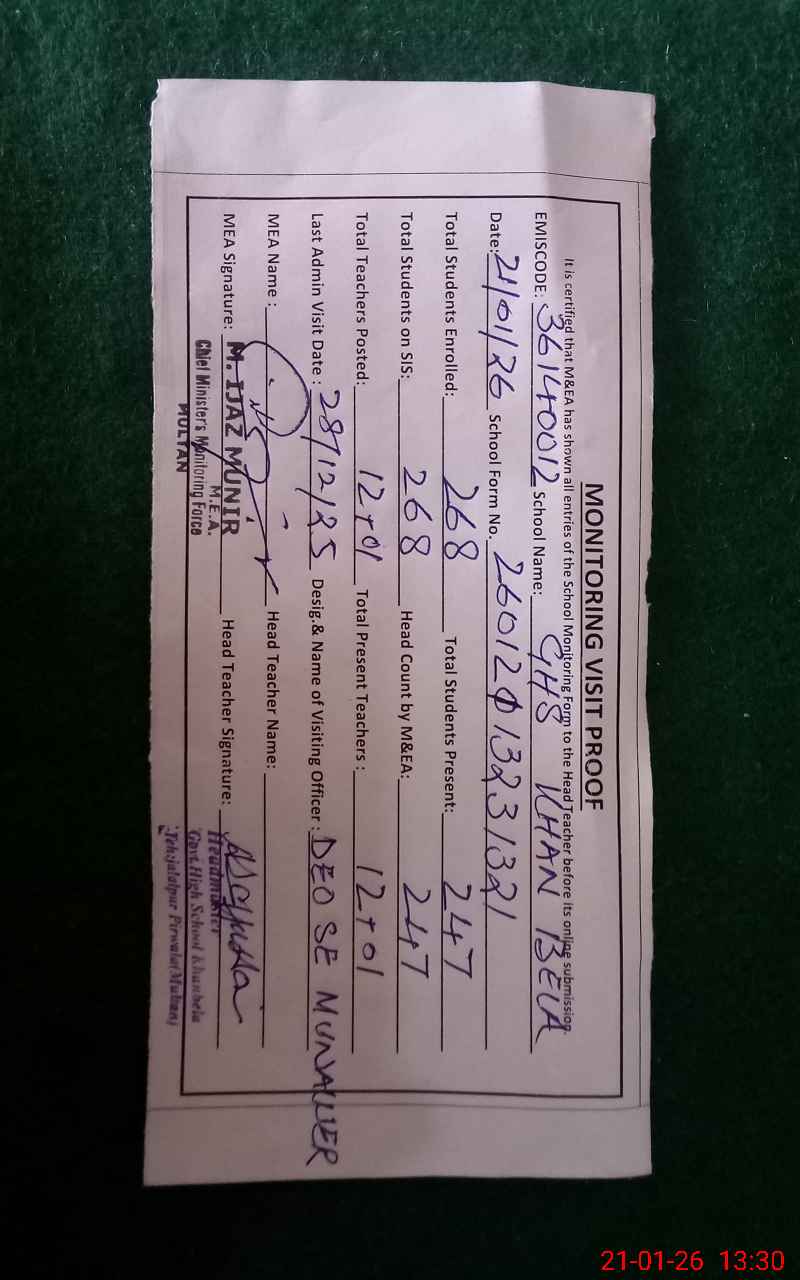 MONITORING VISIT PROOF
It is certified that M&EA has shown all entries of the School Monitoring Form to the Head Teacher before its online submission.
EMISCODE: 36140012 School Name: GHS KHAN BELA
Date: 21/01/26 School Form No. 26012013231321
Total Students Enrolled: 268 Total Students Present: 247
Total Students on SIS: 268 Head Count by M&EA: 247
Total Teachers Posted: 12+01 Total Present Teachers : 12+01
Last Admin Visit Date : 28/12/25 Desig.& Name of Visiting Officer : DEO SE MUNAWER
MEA Name : Head Teacher Name:
MEA Signature: M. IJAZ MUNIR Head Teacher Signature:
M.E.A.
Chief Minister's Monitoring Force
MULTAN
Headmaster
Govt. High School Khanbela
Teh: Jalalpur Pirwala (Multan)
21-01-26 13:30